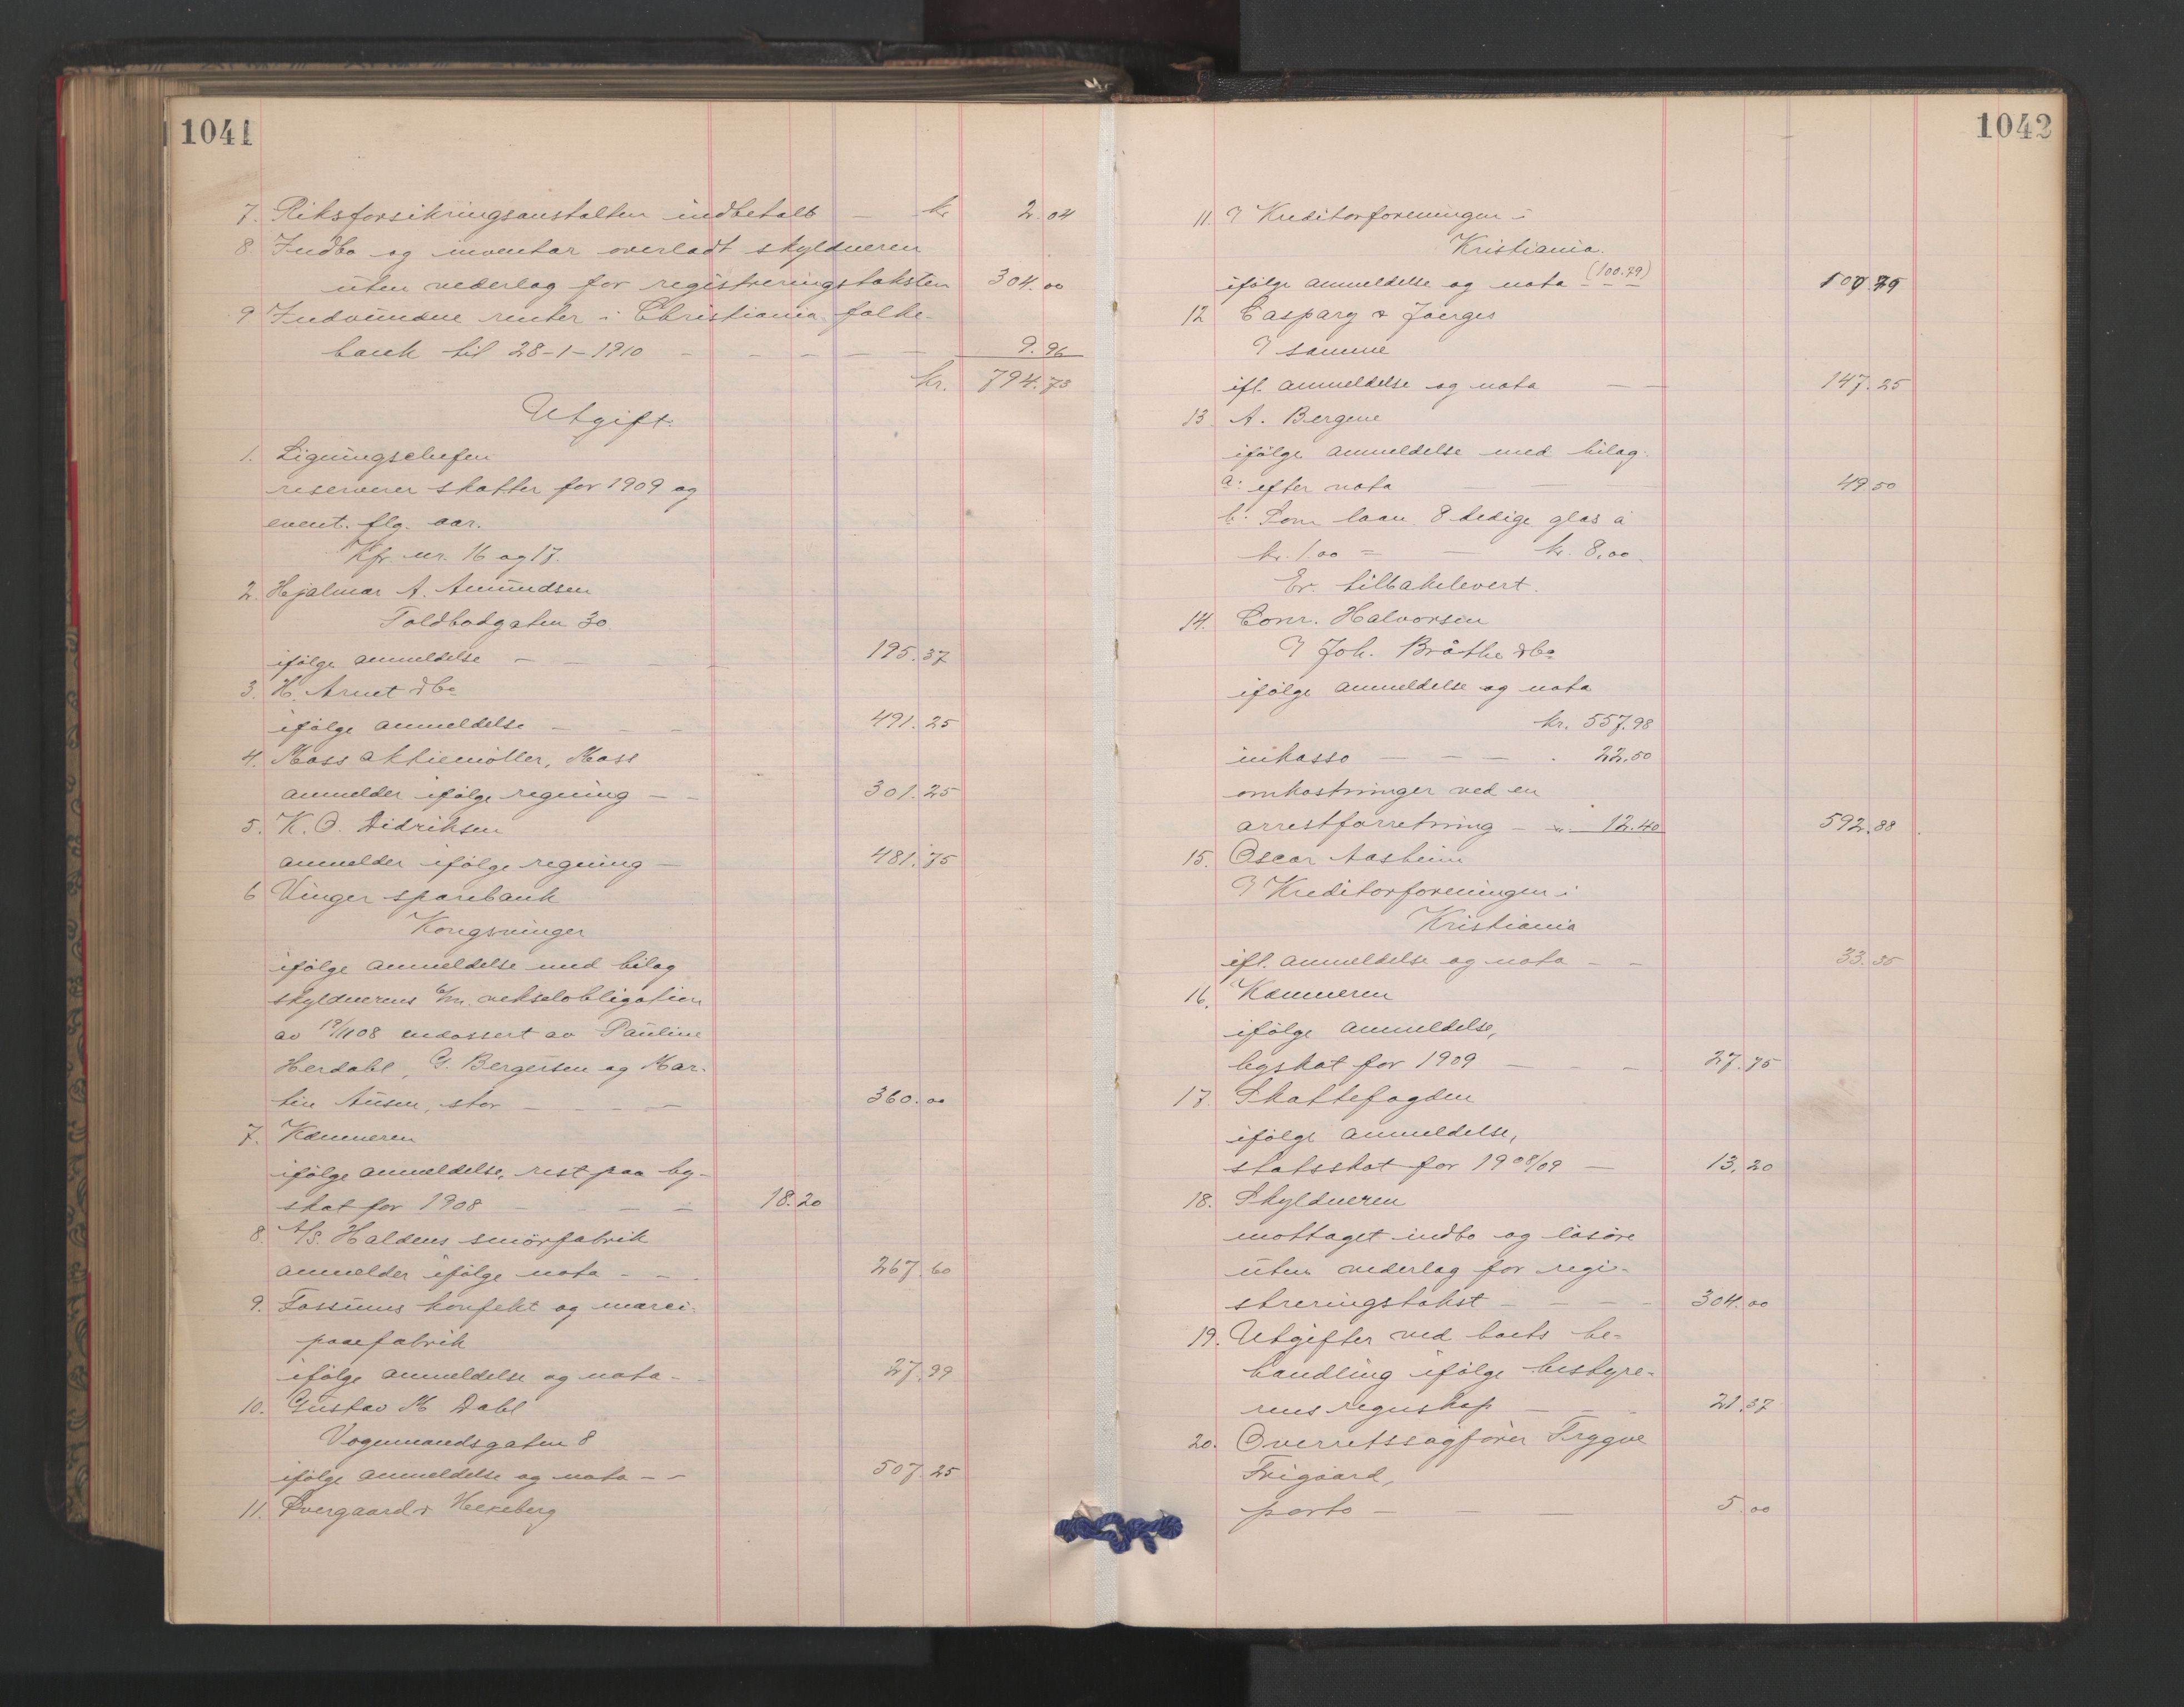 1041
7. Riksforsikringsanstalten indbetalt — kr 2.04
8. Indbo og inventar overladt skyldneren
uten vederlag for registreringstaksten 304.00
9. Indvundne renter i Christiania folke-
bank til 28-1-1910 — — — — — 9.96
kr. 794.73
Utgift:
1. Ligningschefen
reserverer skatter for 1909 og
event. flg. aar.
Kfr. nr. 16 og 17.
2. Hjalmar A. Amundsen
Toldbodgaten 30.
ifølge anmeldelse — — — — 195.37
3. H. Arnet &Co
ifølge anmeldelse — — — 491.25
4. Moss aktiemöller, Moss
anmelder ifølge regning — — 301.25
5. K. O. Didriksen
anmelder ifølge regning — 481.75
6 Vinger sparebank
Kongsvinger
ifølge anmeldelse med bilag
skyldnerens 6/m. vekselobligation
av 19/1108 endossert av Pauline
Herdahl, G. Bergersen og Mar-
tin Ausen, stor — — — — 360.00
7. Kæmneren
ifølge anmeldelse, rest paa by-
skat for 1908 — — — — 18.20
8. A/S. Haldens smörfabrik
anmelder ifølge nota — — 267.60
9. Fossums konfekt og marci-
panefabrik
ifølge anmeldelse og nota — 27.99
10. Gustav M Dahl
Vognmandsgaten 8
ifølge anmeldelse og nota — — 507.25
11. Overgaard & Hexeberg
1042
11. ved Kreditorforeningen i
Kristiania.
ifølge anmeldelse og nota (100.79) 100.79
12 Caspary & Joerges
ved samme
ifl. anmeldelse og nota — — 147.25
13. A. Bergene
ifølge anmeldelse med bilag.
a: efter nota — — — 49.50
b: Som laan 8 ledige glas á
kr. 1.00 = — kr. 8.00.
Er tilbakelevert.
14. Conr. Halvorsen
ved Joh. Bråthe &Co
ifølge anmeldelse og nota
kr. 557.98
inkasso — — — . 22.50
omkostninger ved en
arrestforretning — " — 12.40 592.88
15. Oscar Aasheim
ved Kreditorforeningen i
Kristiania
ifl. anmeldelse og nota — — 33.35
16. Kæmneren
ifølge anmeldelse,
byskat for 1909 — — — 27.75
17. Skattefogden
ifølge anmeldelse,
statsskat for 1908/09 — 13.20
18. Skyldneren
mottaget indbo og løsøre
uten vederlag for regi-
streringstakst — — — — 304.00
19. Utgifter ved boets be-
handling ifølge bestyre-
rens regnskap — — — 21.37
20. Overretssagfører Trygve
Frigaard,
porto — — — 5.00